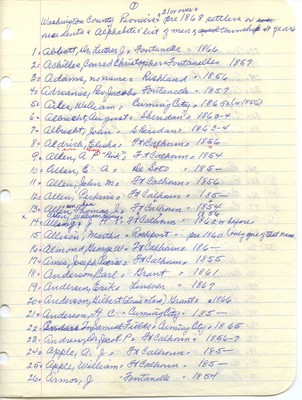 ①
21 or over &
Washington County Pioneers Pre 1868 settlers or
residents & alphabetic list of men & township & years
1. Abbott, Rev. Luther J. Fontanelle - 1866
2. Achilles, Conrad Christopher Fontanelle 1857
3. Adams, no name Richland - 1856
4. Adriance, Rev. Jacob Fontanelle - 1857
5. Arles, William, Cuming City -
6. Albrecht, August - Sheridan 1863-4
7. Albrecht, John - Sheridan 1863-4
8. Aldrich, Elisha Ft Calhoun - 1856
9. Allen, A. P. "Pink" Ft Calhoun - 1854
10. Allen, E. A. De Soto - 185-
11. Allen, John M. Ft Calhoun - 1856
12. Allen, Perkins Ft Calhoun - 185-
13. Allen, Thomas J. Ft Calhoun - 1854
14. Allings Ft Calhoun 1868 or before
15. Allison, Rockport - pre 1860 (only one of this name
16. Almond, George W. Ft Calhoun 186-
17. Ames, Joseph Ft Calhoun - 1855
18. Anderson, Carl - Grant - 1861
19. Andersen, Erik Lincoln - 1867
20. Anderson, Gilbert Grant - 1866
21. Anderson, H. C. - Cuming City - 185-
22. Cuming City - 1865
23. Andrew, Dr. Jacob P. Ft Calhoun - 1856-7
24. Apple, A. J. - Ft Calhoun - 185-
25. Apple, William - Ft Calhoun - 185-
26. Armor, J. Fontanelle - 1854